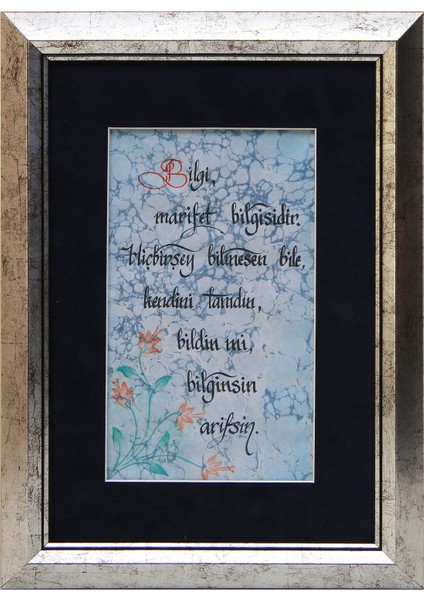 Bilgi,
marifet bilgisidir.
Hiçbirşey bilmesen bile,
kendini tanıdın,
bildin mi,
bilginsin
arifsin.